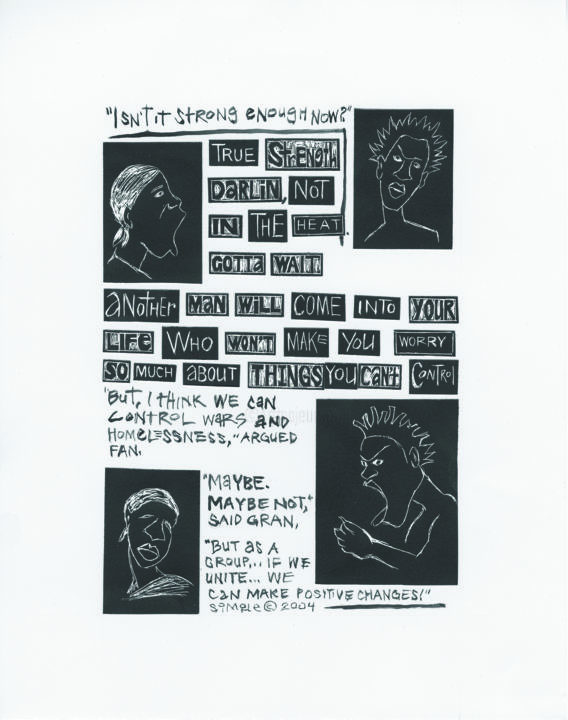 "ISN'T IT STRONG ENOUGH NOW?"
TRUE STRENGTH
DARLIN, NOT
IN THE HEAT.
GOTTA WAIT
ANOTHER MAN WILL COME INTO YOUR
LIFE WHO WON'T MAKE YOU WORRY
SO MUCH ABOUT THINGS YOU CAN'T CONTROL
"BUT, I THINK WE CAN
CONTROL WARS AND
HOMELESSNESS," ARGUED
FAN.
"MAYBE.
MAYBE NOT,"
SAID GRAN,
"BUT AS A
GROUP,.. IF WE
UNITE... WE
CAN MAKE POSITIVE CHANGES!"
SIMPLE © 2004